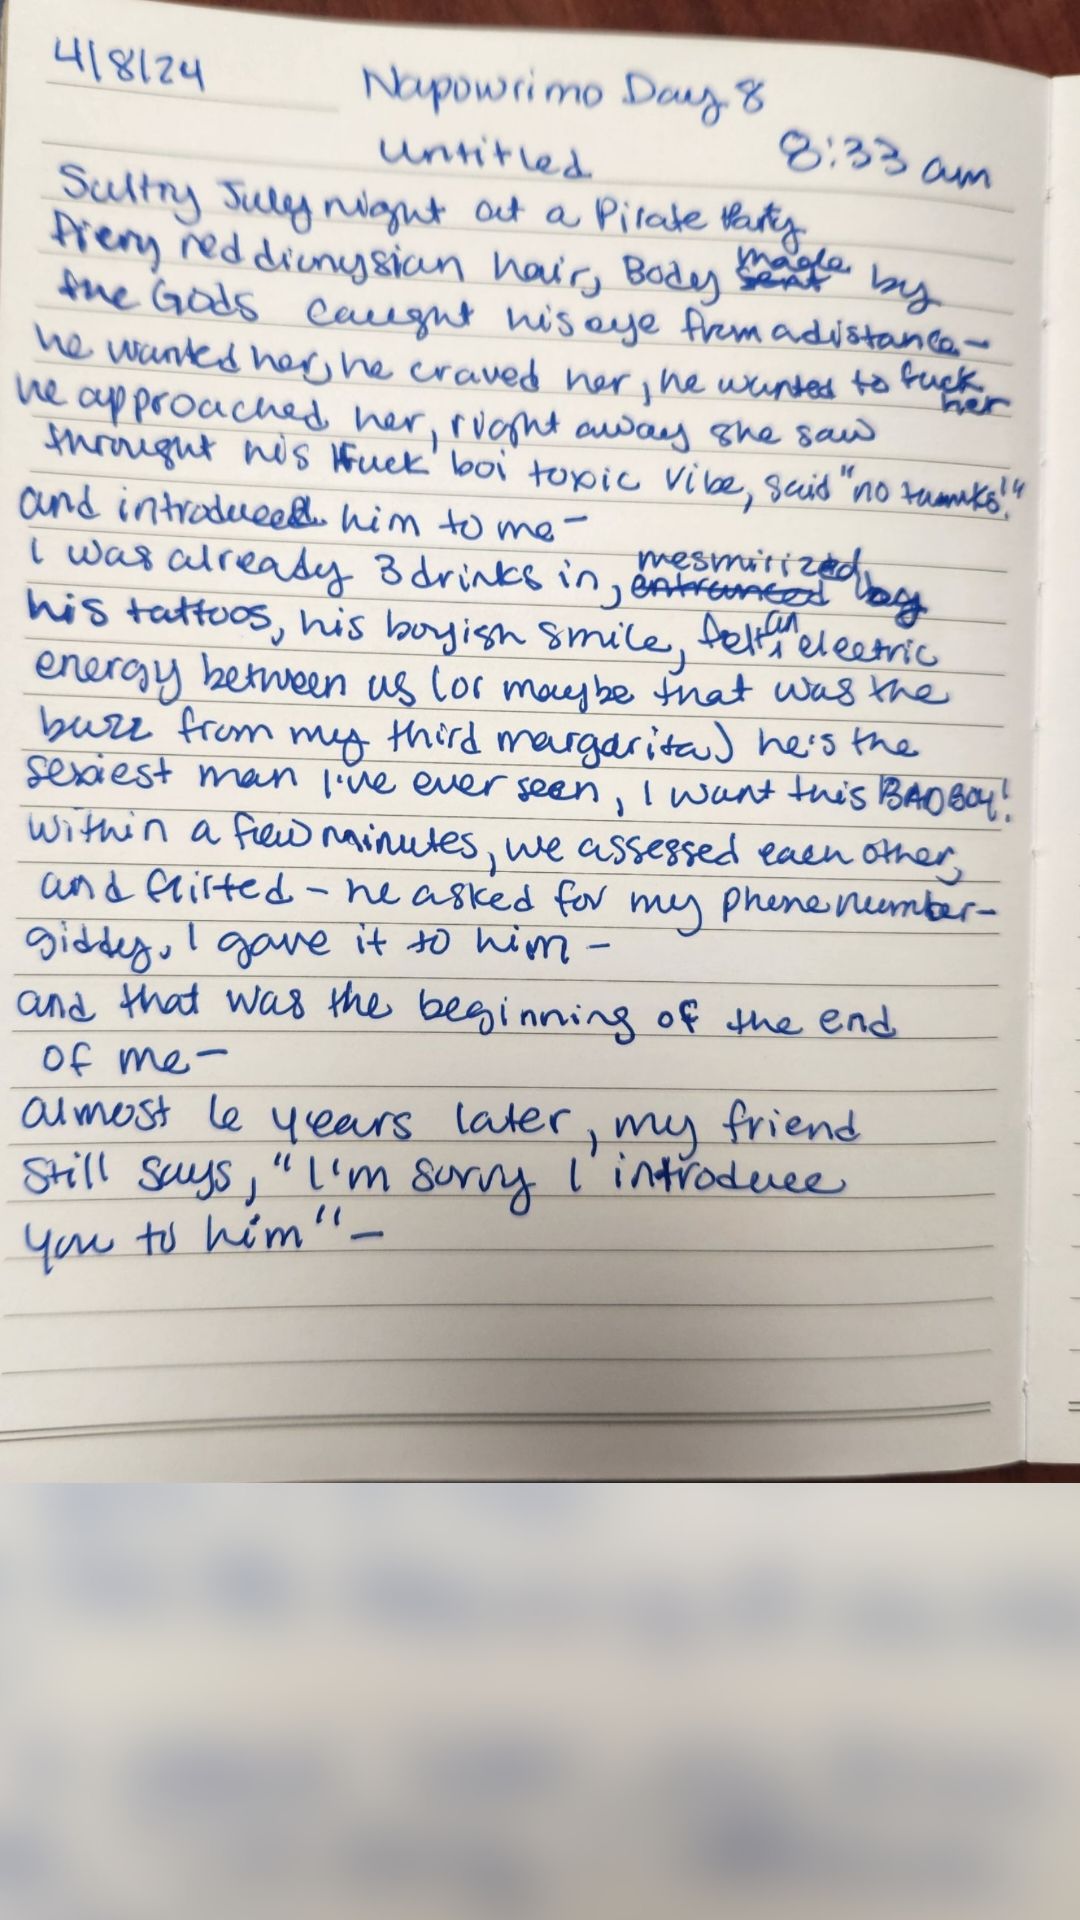 4/8/24
Napowrimo Day 8
Untitled 8:33 am
Sultry July night at a Pirate Party
fiery red dionysian hair, Body made by
the Gods caught his eye from a distance—
he wanted her, he craved her, he wanted to fuck her
he approached her, right away she saw
throught his fuck boi toxic vibe, said "no thanks!"
and introduced him to me—
I was already 3 drinks in, mesmirized by
his tattoos, his boyish smile, felt an electric
energy between us (or maybe that was the
buzz from my third margarita) he's the
sexiest man I've ever seen, I want this BAD BOY!
Within a few minutes, we assessed each other,
and flirted — he asked for my phone number—
giddy, I gave it to him —
and that was the beginning of the end
of me—
almost 6 years later, my friend
still says, "I'm sorry I introduce
you to him"—